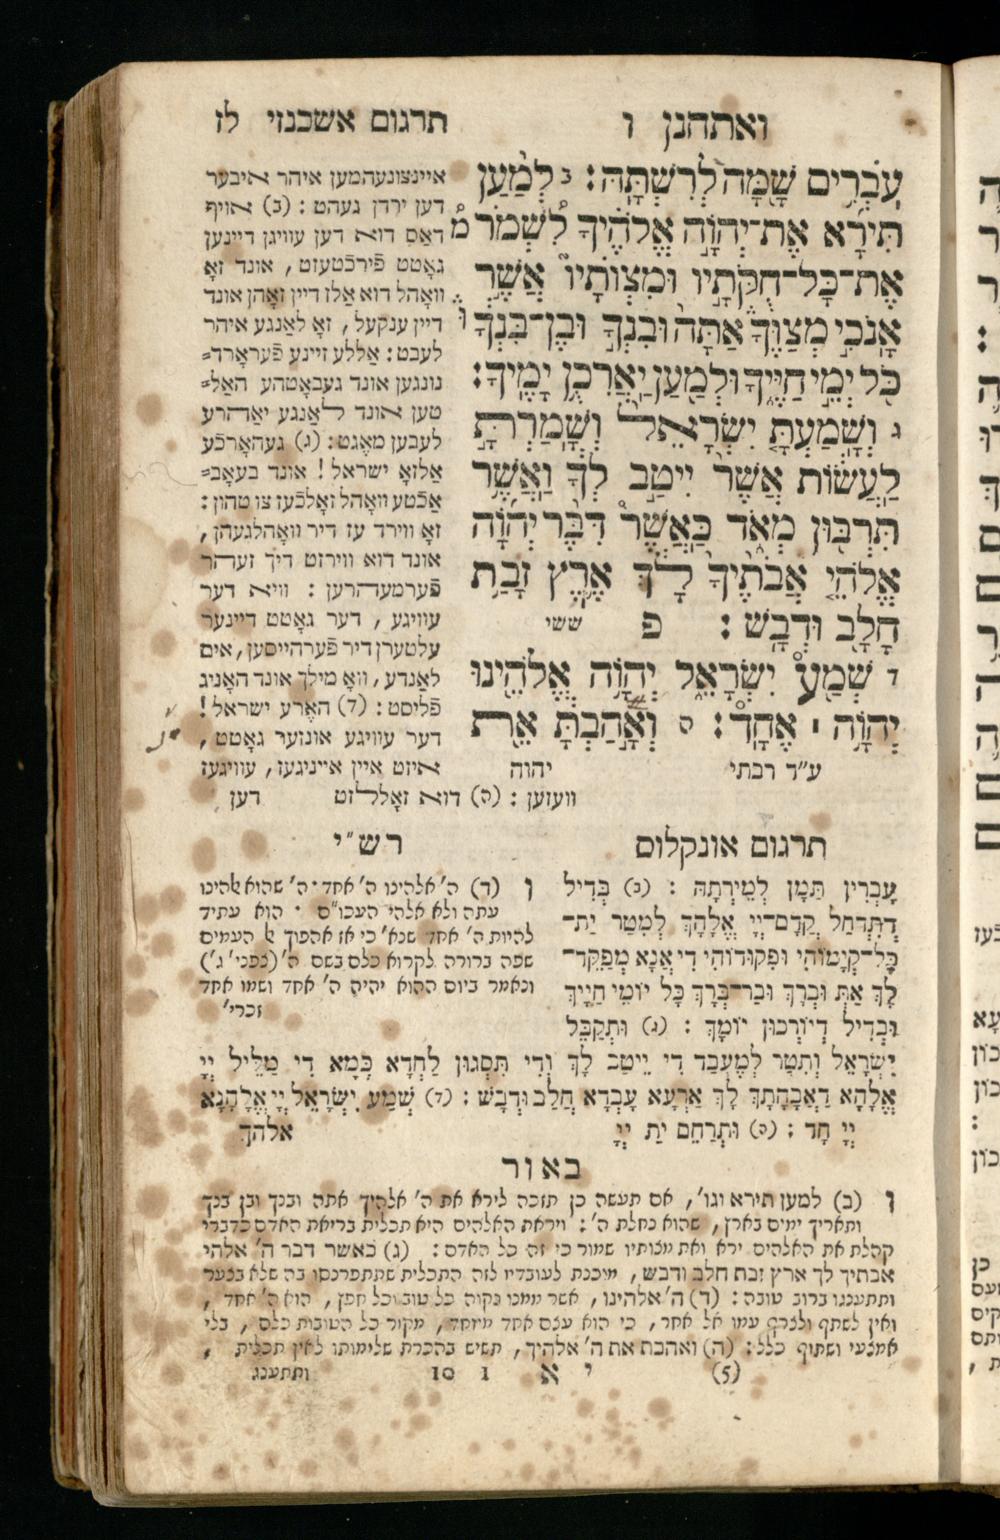 ואתחנן ו
תרגום אשכנזי לז
עֹבְרִים שָׁמָּה לְרִשְׁתָּהּ׃ ב לְמַעַן
תִּירָא אֶת־יְהוָֹה אֱלֹהֶיךָ לִשְׁמֹר מ
אֶת־כָּל־חֻקֹּתָיו וּמִצְוֹתָיו אֲשֶׁר
אָנֹכִי מְצַוֶּךָ אַתָּה וּבִנְךָ וּבֶן־בִּנְךָ ו
כֹּל יְמֵי חַיֶּיךָ וּלְמַעַן יַאֲרִכֻן יָמֶיךָ׃
ג וְשָׁמַעְתָּ יִשְׂרָאֵל וְשָׁמַרְתָּ
לַעֲשׂוֹת אֲשֶׁר יִיטַב לְךָ וַאֲשֶׁר
תִּרְבּוּן מְאֹד כַּאֲשֶׁר דִּבֶּר יְהוָֹה
אֱלֹהֵי אֲבֹתֶיךָ לָךְ אֶרֶץ זָבַת
חָלָב וּדְבָשׁ׃ פ ששי
ד שְׁמַע יִשְׂרָאֵל יְהוָֹה אֱלֹהֵינוּ
יְהוָֹה ׀ אֶחָד׃ ס וְאָהַבְתָּ אֵת
ע״ד רבתי יהוה
איינצונעהמען איהר איבער
דען ירדן געהט : (ב) אויף
דאַס דוא דען עוויגן דיינען
גאָטט פֿירכֿטעזט , אונד זאָ
וואָהל דוא אַלז דיין זאָהן אונד
דיין ענקעל , זאָ לאַנגע איהר
לעבט : אַללע זיינע פֿעראָרד=
נונגען אונד געבאָטהע האַל=
טען אונד לאַנגע יאַהרע
לעבען מאָגט : (ג) געהאָרכֿע
אַלזאָ ישראל ! אונד בעאָב=
אַכֿטע וואָהל זאָלכֿעז צו טהון :
זאָ ווירד עז דיר וואָהלגעהן ,
אונד דוא ווירזט דיך זעהר
פֿערמעהרען : וויא דער
עוויגע , דער גאָטט דיינער
עלטערן דיר פֿערהייסען , אים
לאַנדע , וואָ מילך אונד האָניג
פֿליסט : (ד) האָרע ישראל !
דער עוויגע אונזער גאָטט ,
איזט איין אייניגעז , עוויגעז
וועזען : (ה) דוא זאָללזט דען
תרגום אונקלוס
עָבְרִין תַּמָן לְמֵירְתָהּ : (ב) בְּדִיל
דְתִדְחַל קֳדָם־יְיָ אֱלָהָךְ לְמִטַר יַת־
כָּל־קְיָמוֹהִי וּפִקוּדוֹהִי דִי אֲנָא מְפַקֵּד־
לָךְ אַתְּ וּבְרָךְ וּבַר־בְּרָךְ כָּל יוֹמֵי חַיָּיךְ
וּבְדִיל דְיוֹרְכוּן יוֹמָךְ : (ג) וּתְקַבֵּל
יִשְׂרָאֵל וְתִטַר לְמֶעְבַּד דִי יֵיטַב לָךְ וְדִי תִּסְגּוּן לַחְדָא כְּמָא דִי מַלֵּיל יְיָ
אֱלָהָא דַאֲבָהָתָךְ לָךְ אַרְעָא עָבְדָא חֲלַב וּדְבָשׁ : (ד) שְׁמַע יִשְׂרָאֵל יְיָ אֱלָהָנָא
יְיָ חָד : (ה) וּתְרַחֵם יַת יְיָ אלהך
רש״י
ן (ד) ה' אלהינו ה' אחד ׳ ה' שהוא אלהינו
עתה ולא אלהי העכו״ם ׳ הוא עתיד
להיות ה' אחד שנא' כי אז אהפוך אל העמים
שפה ברורה לקרוא כלם בשם ה' (צפני' ג')
ונאמר ביום ההוא יהיה ה' אחד ושמו אחד
זכרי'
באור
ן (ב) למען תירא וגו' , אם תעשה כן תזכה לירא את ה' אלהיך אתה ובנך ובן בנך
ותאריך ימים בארץ , שהוא נחלת ה' : ויראת האלהים היא תכלית בריאת האדם כדברי
קהלת את האלהים ירא ואת מצותיו שמור כי זה כל האדם : (ג) כאשר דבר ה' אלהי
אבתיך לך ארץ זבת חלב ודבש , מוכנת לעובדיו לזה התכלית שתתפרנסו בה שלא בצער
ותתענגו ברוב טובה : (ד) ה' אלהינו , אשר ממנו נקוה כל טוב וכל חפץ , הוא ה' אחד ,
ואין לשתף ולצרף עמו אל אחר , כי הוא עצם אחד מיוחד , מקור כל הטובות כלם , בלי
אמצעי ושתוף כלל : (ה) ואהבת את ה' אלהיך , תשיש בהכרת שלימותו לאין תכלית ,
(5) י א 1 10 ותתענג